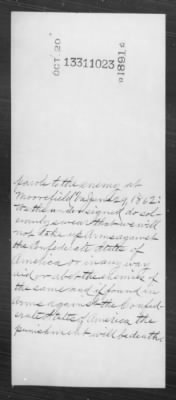 OCT 20
13311023
1891
parole to the enemy at
Moorefield Va April 29, 1862:
We the undersigned do sol-
emnly swear that we will
not take up Arms against
the Confederate States of
America or in any way
aid or abet the Enemies of
the same and if found in
Arms against the Confed-
erate States of America the
punishment will be death